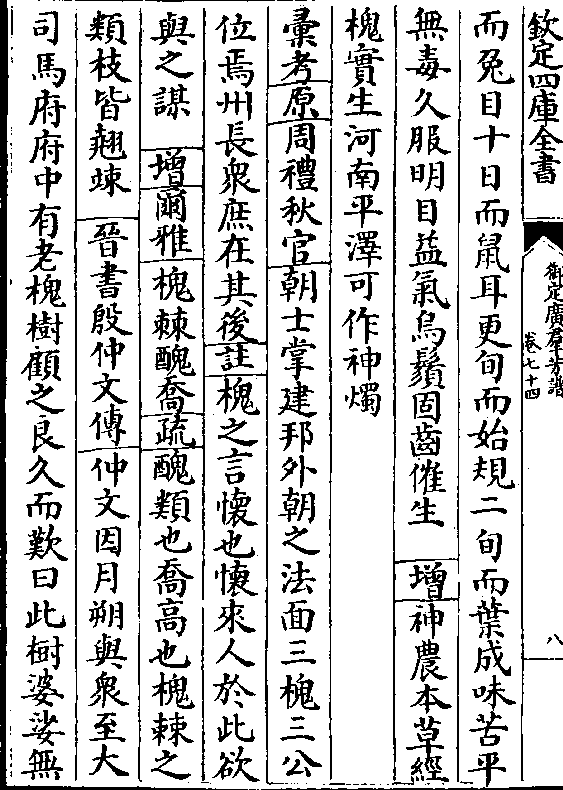 欽定四庫全書
御定廣羣芳譜
卷七十四
八
而兔目十日而鼠耳更旬而始規二旬而葉成味苦平
無毒久服明目益氣烏鬚固齒催生 增神農本草經
槐實生河南平澤可作神燭
彙考原周禮秋官朝士掌建邦外朝之法面三槐三公
位焉州長衆庶在其後註槐之言懷也懷來人於此欲
與之謀 增爾雅槐棘醜喬疏醜類也喬高也槐棘之
類枝皆翹竦 晉書殷仲文傳仲文因月朔與衆至大
司馬府府中有老槐樹顧之良久而歎曰此樹婆娑無